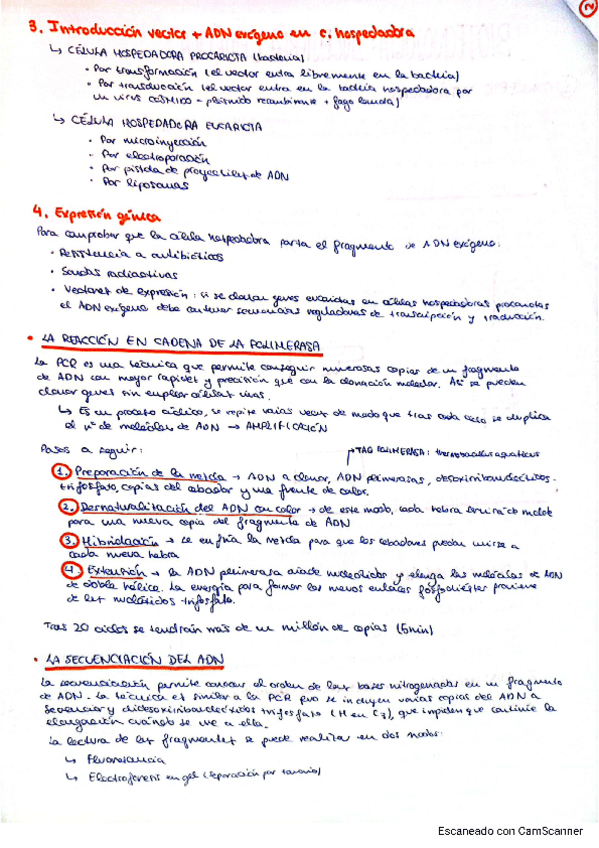 2
3. Introducción vector + ADN exógeno en c. hospedadora
↳ CÉLULA HOSPEDADORA PROCARIOTA (bacteria)
• Por transformación (el vector entra libremente en la bacteria)
• Por transducción (el vector entra en la bacteria hospedadora por
un virus CÓSMIDO - plásmido recombinante + fago lambda)
↳ CÉLULA HOSPEDADORA EUCARIOTA
• Por microinyección
• Por electroporación
• Por pistola de proyectiles de ADN
• Por liposomas
4. Expresión génica
Para comprobar que la célula hospedadora porta el fragmento de ADN exógeno:
• Resistencia a antibióticos
• Sondas radiactivas
• Vectores de expresión: si se clonan genes eucariotas en células hospedadoras procariotas
el ADN exógeno debe contener secuencias reguladoras de transcripción y traducción.
• LA REACCIÓN EN CADENA DE LA POLIMERASA
La PCR es una técnica que permite conseguir numerosas copias de un fragmento
de ADN con mayor rapidez y precisión que con la clonación molecular. Así se pueden
clonar genes sin emplear células vivas.
↳ Es un proceso cíclico, se repite varias veces de modo que tras cada ciclo se duplica
el nº de moléculas de ADN → AMPLIFICACIÓN
Pasos a seguir:
→ TAQ POLIMERASA: thermobacillus aquaticus
1. Preparación de la mezcla → ADN a clonar, ADN polimerasas, desoxirribonucleótidos
trifosfato, copias del cebador y una fuente de calor.
2. Desnaturalización del ADN con calor → de este modo, cada hebra servirá de molde
para una nueva copia del fragmento de ADN
3. Hibridación → se enfría la mezcla para que los cebadores puedan unirse a
cada nueva hebra
4. Extensión → la ADN polimerasa añade nucleótidos y alarga las moléculas de ADN
de doble hélice. La energía para formar los nuevos enlaces fosfodiéster proviene
de los nucleótidos trifosfato.
Tras 20 ciclos se tendrán más de un millón de copias (5min)
• LA SECUENCIACIÓN DEL ADN
La secuenciación permite conocer el orden de las bases nitrogenadas en un fragmento
de ADN. La técnica es similar a la PCR pero se incluyen varias copias del ADN a
secuenciar y didesoxirribonucleótidos trifosfato (H en C3), que impiden que continúe la
elongación cuando se une a ella.
La lectura de los fragmentos se puede realizar en dos modos:
↳ Fluorescencia
↳ Electroforesis en gel (separación por tamaño)
Escaneado con CamScanner